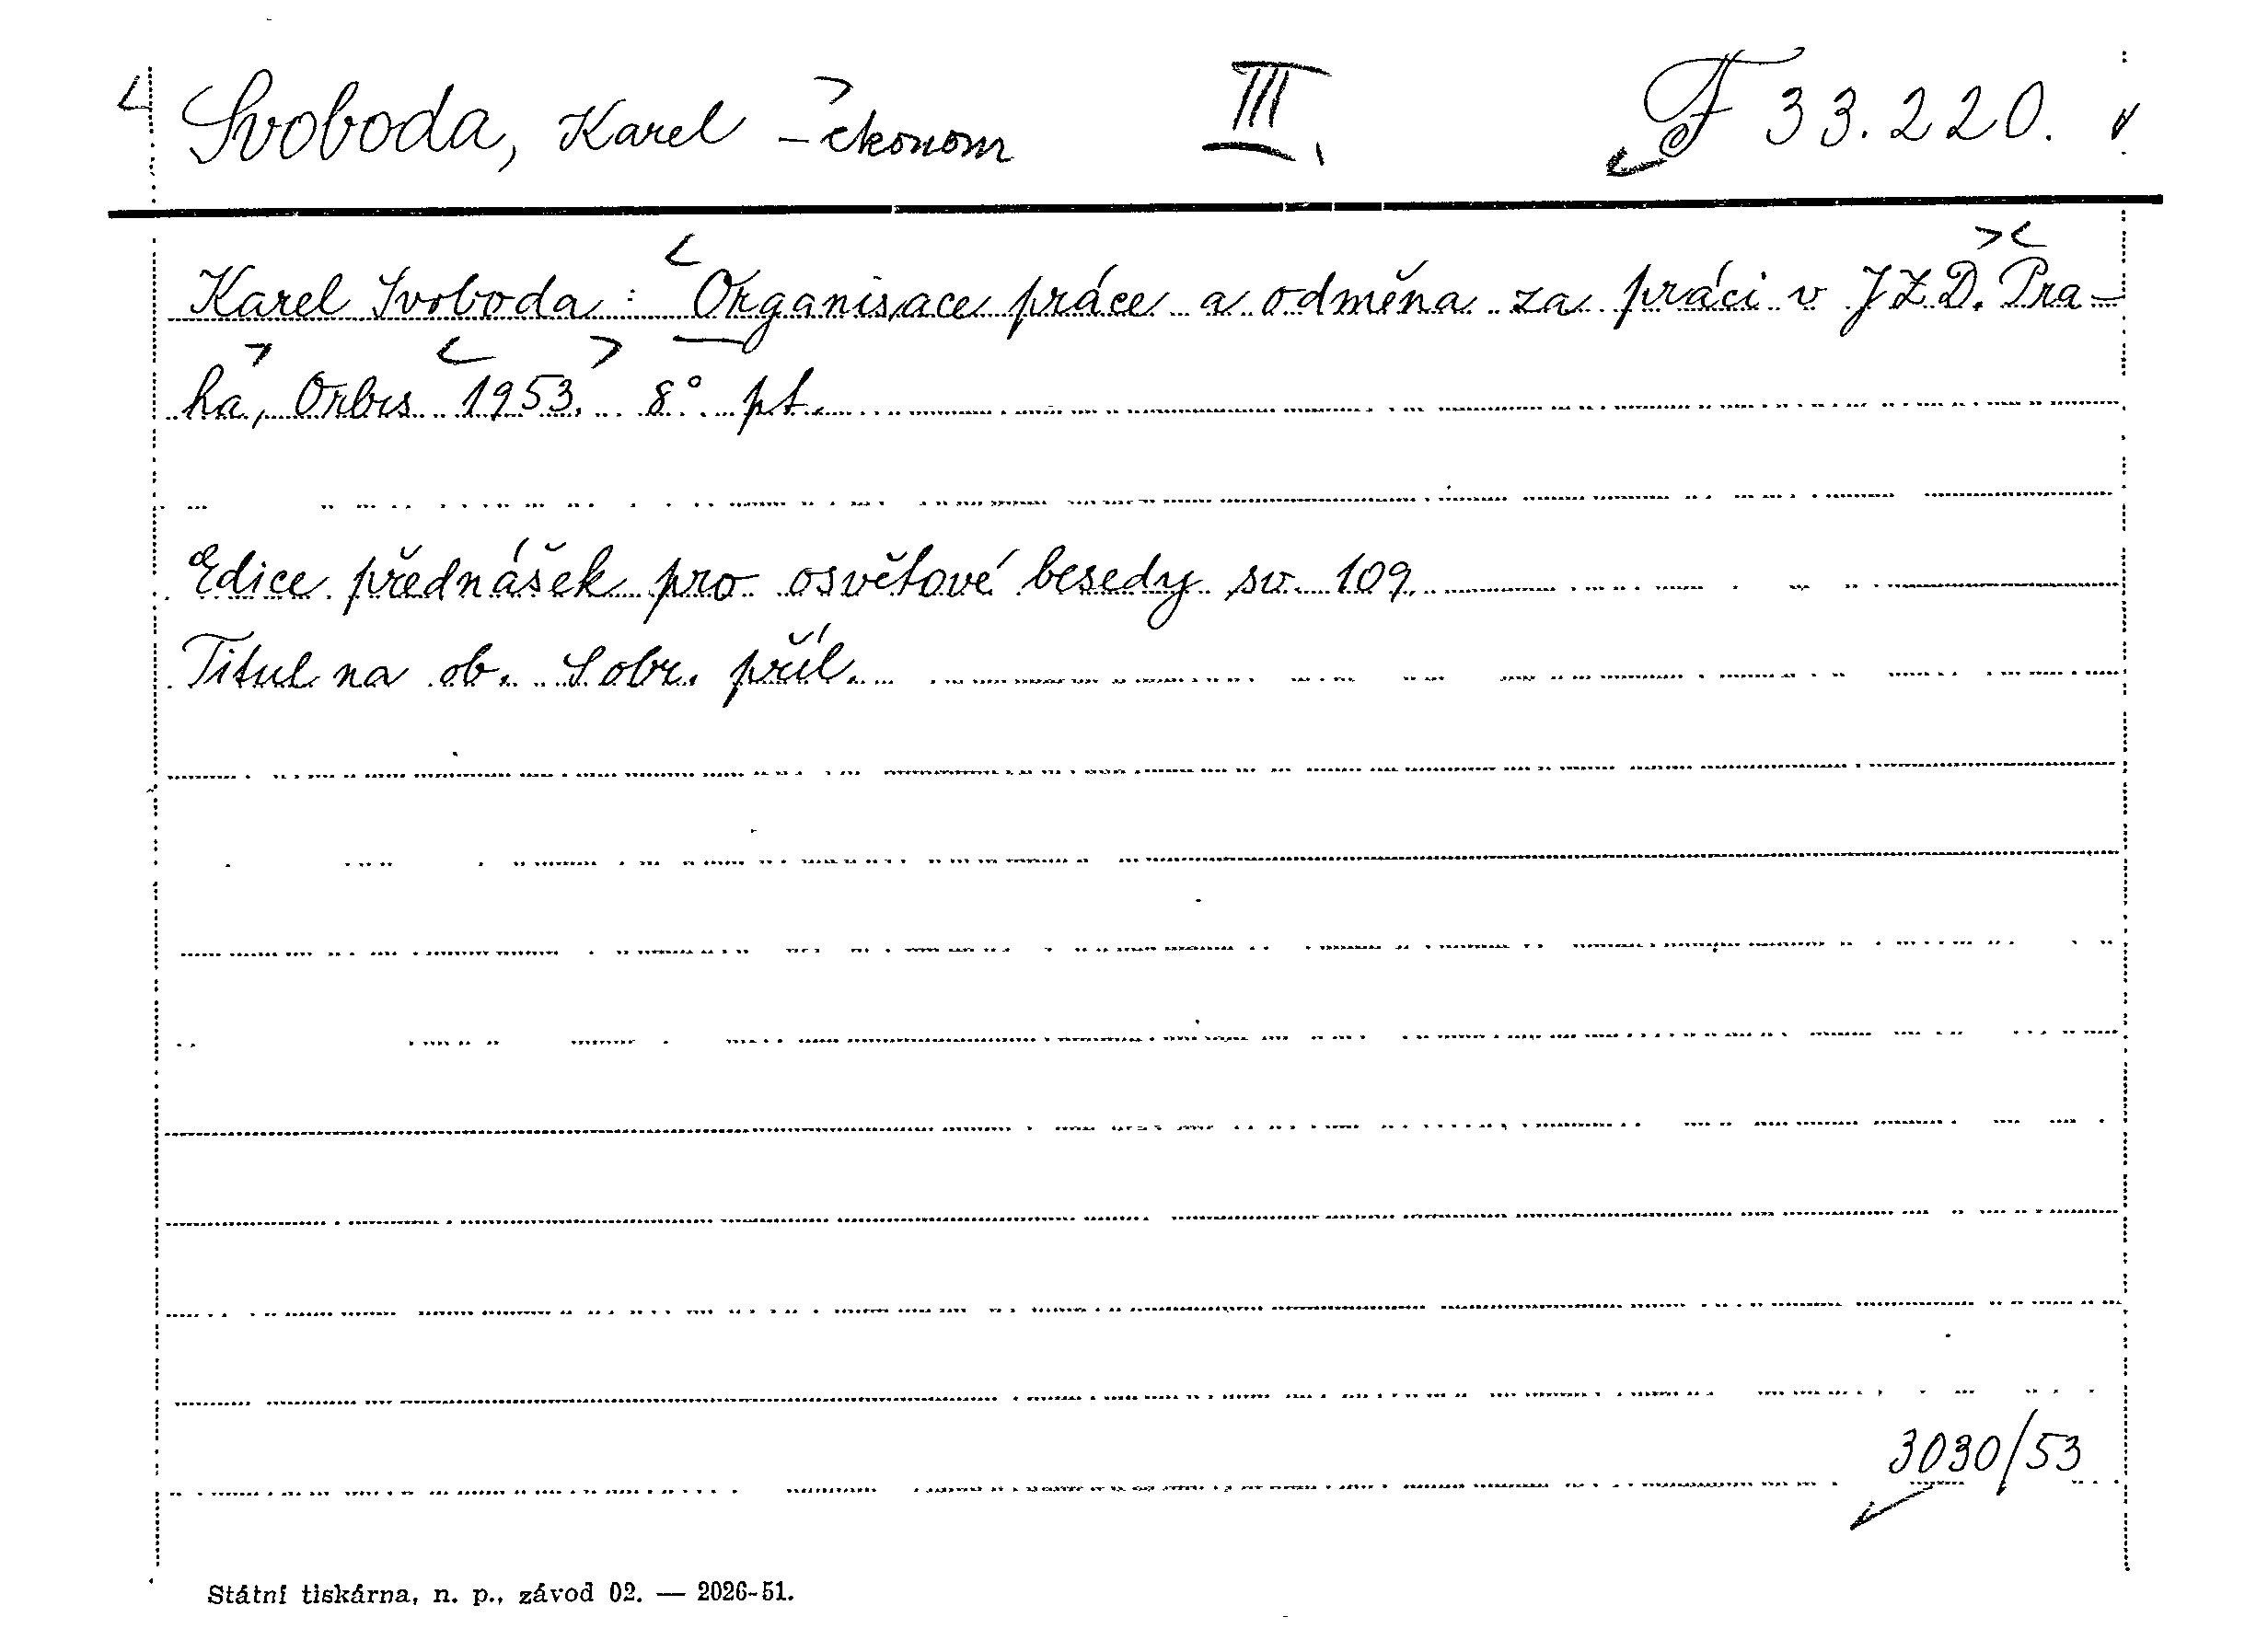 Svoboda, Karel - ekonom III. F 33.220.
Karel Svoboda: Organisace práce a odměna za práci v JZD. Pra-
ha, Orbis 1953. 8° pt.
Edice přednášek pro osvětové besedy sv. 109.
Titul na ob. S obr. příl.
3030/53
Státní tiskárna, n. p., závod 02. — 2026-51.